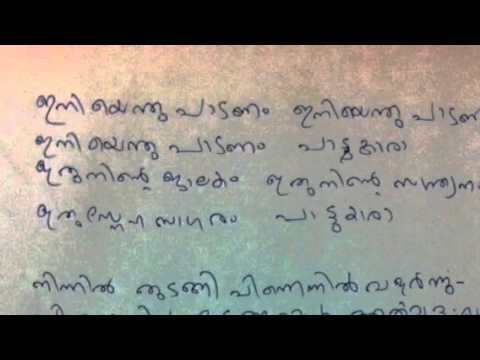 ഇനിയെന്തു പാടണം ഇനിയെന്തു പാടണ
ഇനിയെന്തു പാടണം പാട്ടുകാരാ
ഇതുനിന്റെ ജാലകം ഇതുനിന്റെ സാന്ത്വനം
ഇതുസ്നേഹസാഗരം പാട്ടുകാരാ
നിന്നിൽ തുടങ്ങി പിന്നെന്നിൽ വളർന്നു-